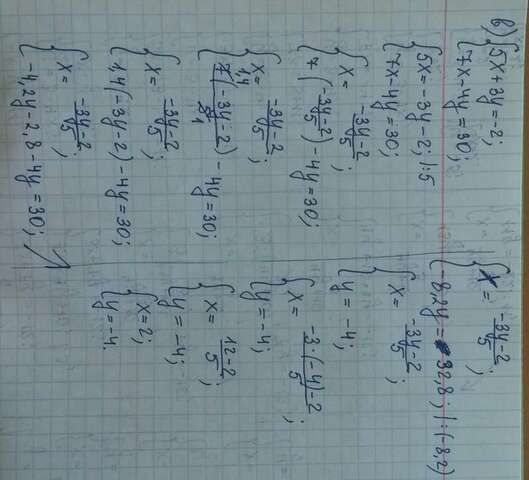 в) { 5x + 3y = -2;
{ 7x - 4y = 30;
{ 5x = -3y - 2; |:5
{ 7x - 4y = 30;
{ x = (-3y-2)/5;
{ 7 ((-3y-2)/5) - 4y = 30;
{ x = (-3y-2)/5;
1,4
{ 7 ((-3y-2)/5) - 4y = 30;
1
{ x = (-3y-2)/5;
{ 1,4 (-3y-2) - 4y = 30;
{ x = (-3y-2)/5;
{ -4,2y - 2,8 - 4y = 30;
{ x = (-3y-2)/5;
{ -8,2y = 32,8; |:(-8,2)
{ x = (-3y-2)/5;
{ y = -4;
{ x = (-3·(-4)-2)/5;
{ y = -4;
{ x = (12-2)/5;
{ y = -4;
{ x = 2;
{ y = -4.